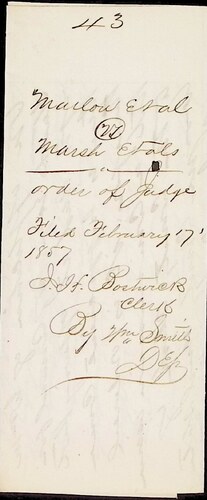 43
Marlow Etal
vs
Marsh Etals
order of Judge
Filed February 17'
1857
J. H. Bostwick
Clerk
By Wm Smith
Dep